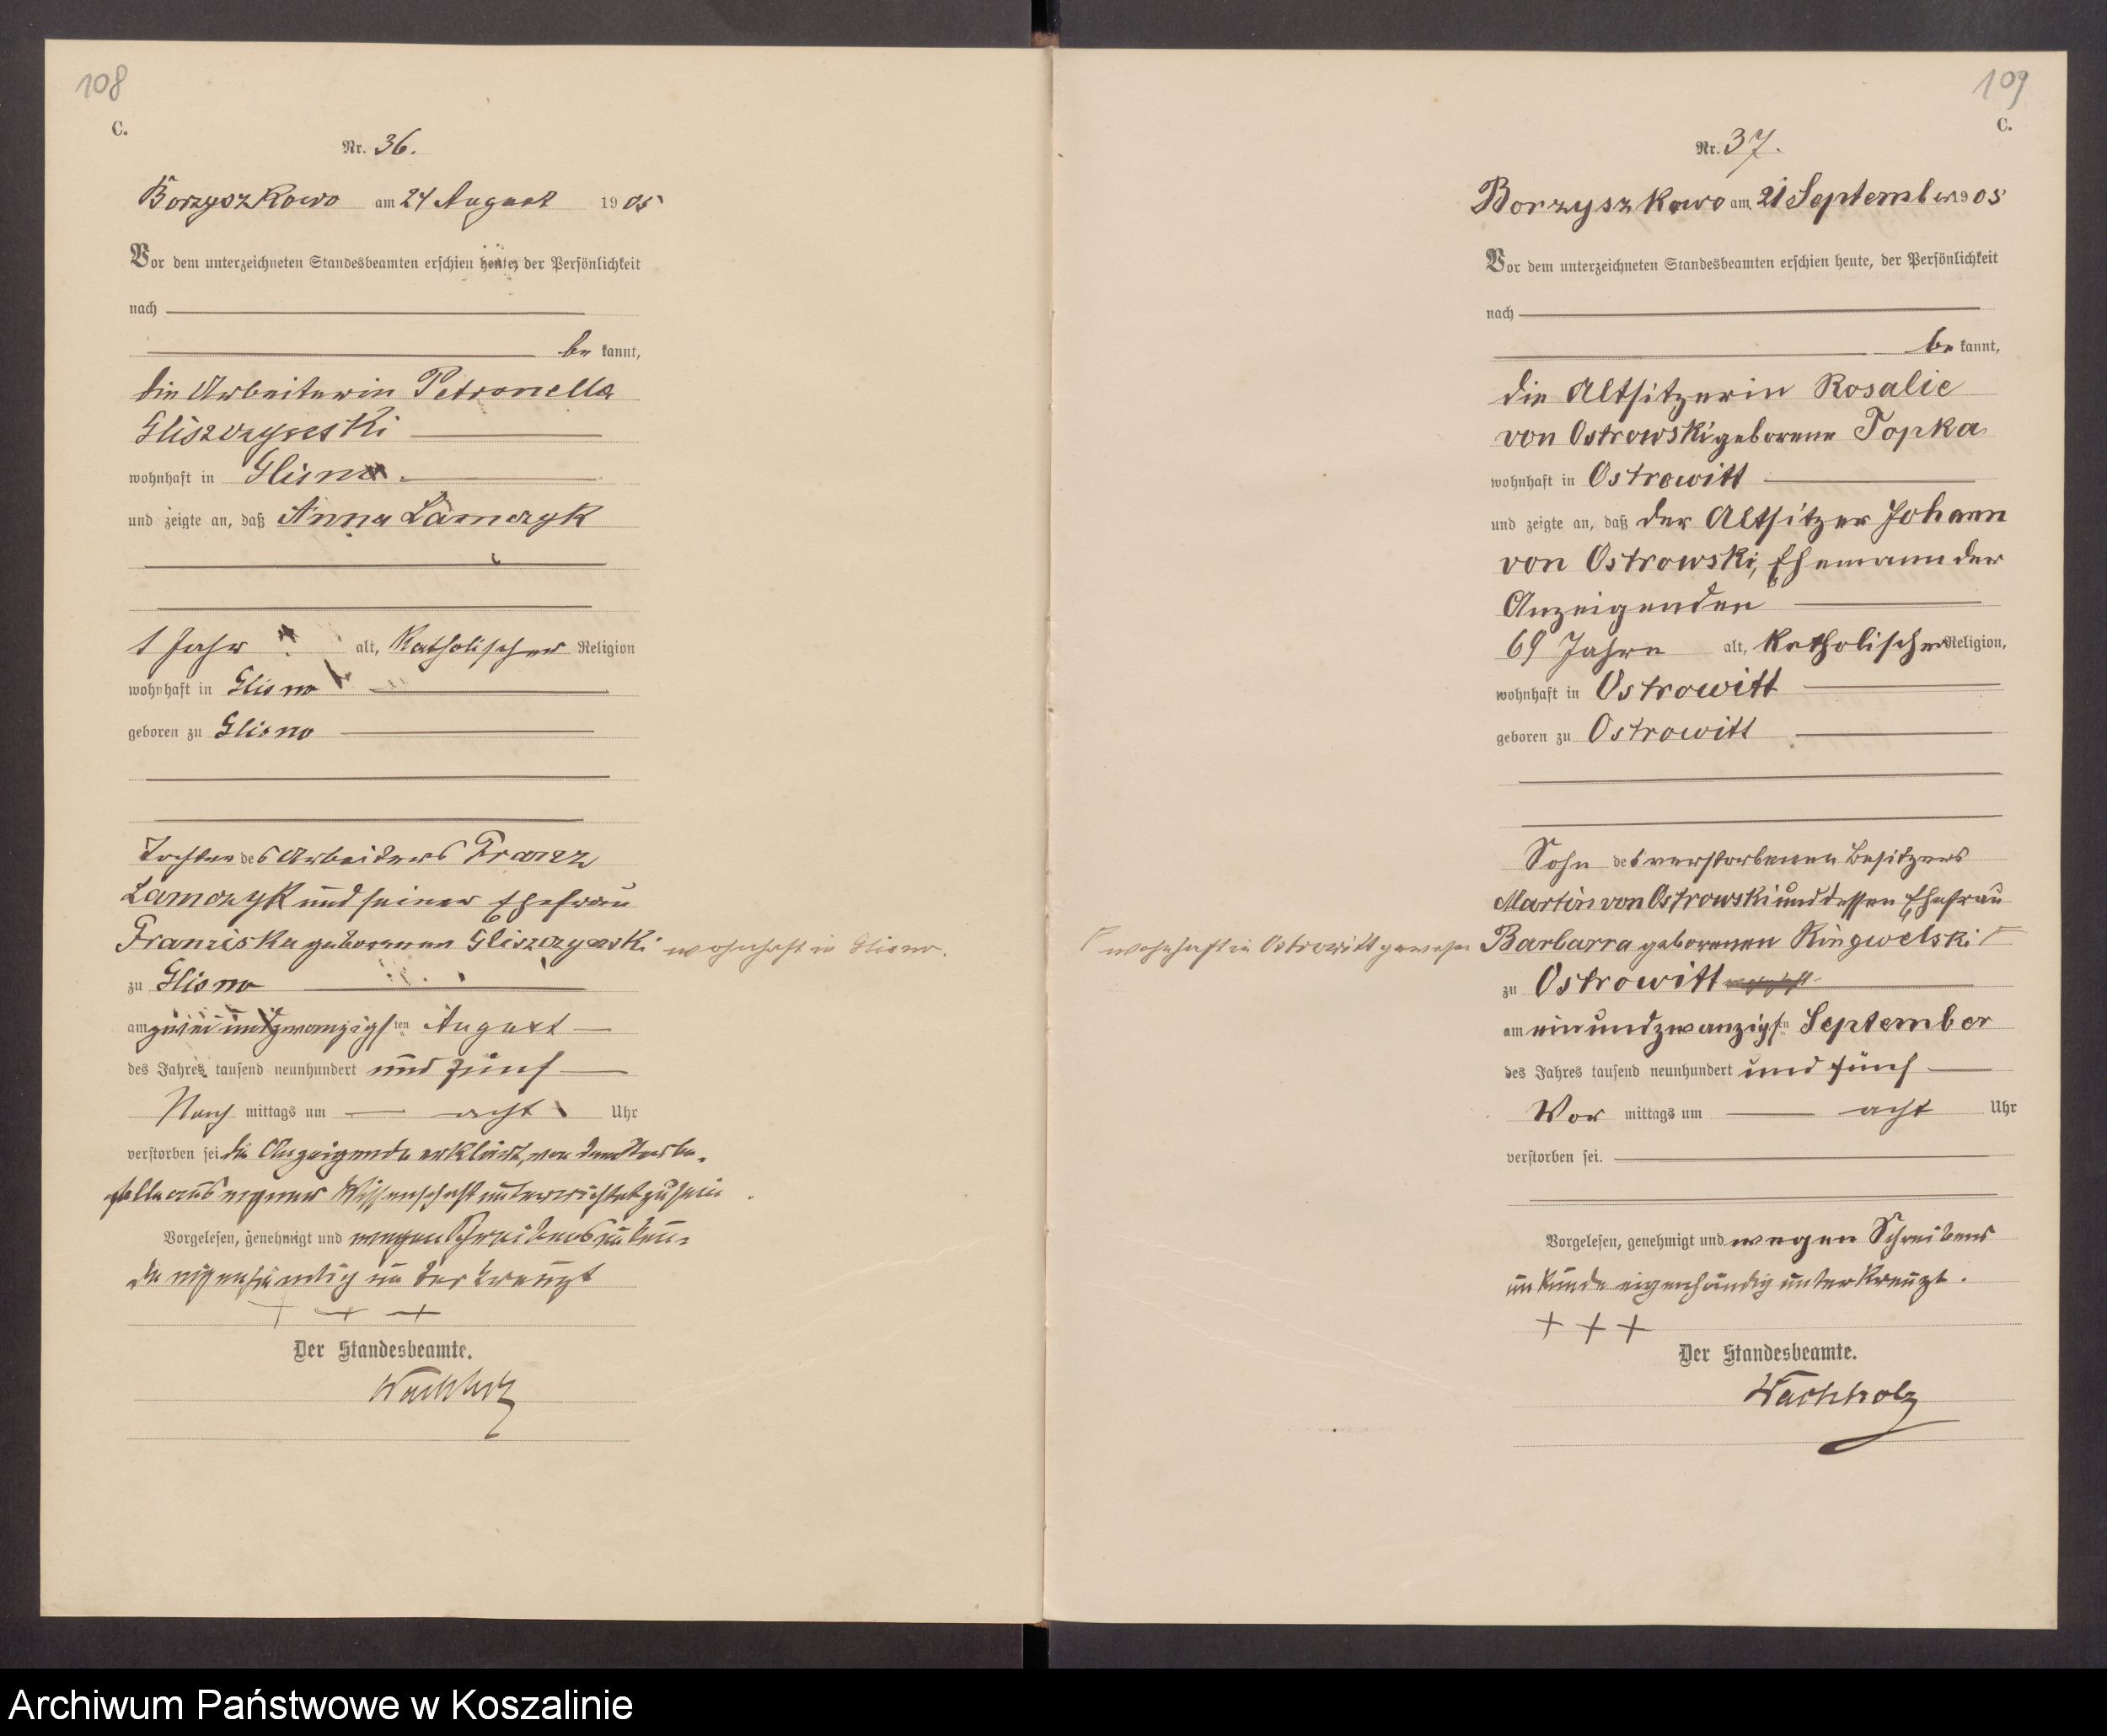 108
C.
Nr. 36.
Borzyszkowo am 24 August 1905
Vor dem unterzeichneten Standesbeamten erschien heute, der Persönlichkeit
nach
be kannt,
die Arbeiterin Petronella
Gliszczynski
wohnhaft in Glisno
und zeigte an, daß Anna Lamczyk
1 Jahr alt, Katholischer Religion
wohnhaft in Glisno
geboren zu Glisno
Tochter des Arbeiters Franz
Lamczyk und seiner Ehefrau
Franziska geborenen Gliszczynski wohnhaft in Glisno.
zu Glisno
am zwei und zwanzigsten August
des Jahres tausend neunhundert und fünf
Nach mittags um acht Uhr
verstorben sei die Anzeigende erklärt, von dem Sterbe-
falle aus eigener Wissenschaft unterrichtet zu sein
Vorgelesen, genehmigt und wegen Schreibensunkun-
de eigenhändig unterkreuzt
+ + +
Der Standesbeamte.
Wachholz
109
C.
Nr. 37.
Borzyszkowo am 21 September 1905
Vor dem unterzeichneten Standesbeamten erschien heute, der Persönlichkeit
nach
be kannt,
die Altsitzerin Rosalie
von Ostrowski geborene Topka
wohnhaft in Ostrowitt
und zeigte an, daß der Altsitzer Johann
von Ostrowski, Ehemann der
Anzeigenden
69 Jahre alt, Katholischer Religion,
wohnhaft in Ostrowitt
geboren zu Ostrowitt
Sohn des verstorbenen Besitzers
Martin von Ostrowski und dessen Ehefrau
Barbarra geborenen Ringwelski
wohnhaft in Ostrowitt gewesen
zu Ostrowitt
am ein und zwanzigsten September
des Jahres tausend neunhundert und fünf
Vor mittags um acht Uhr
verstorben sei.
Vorgelesen, genehmigt und wegen Schreibens
unkunde eigenhändig unterkreuzt.
+ + +
Der Standesbeamte.
Wachholz
Archiwum Państwowe w Koszalinie